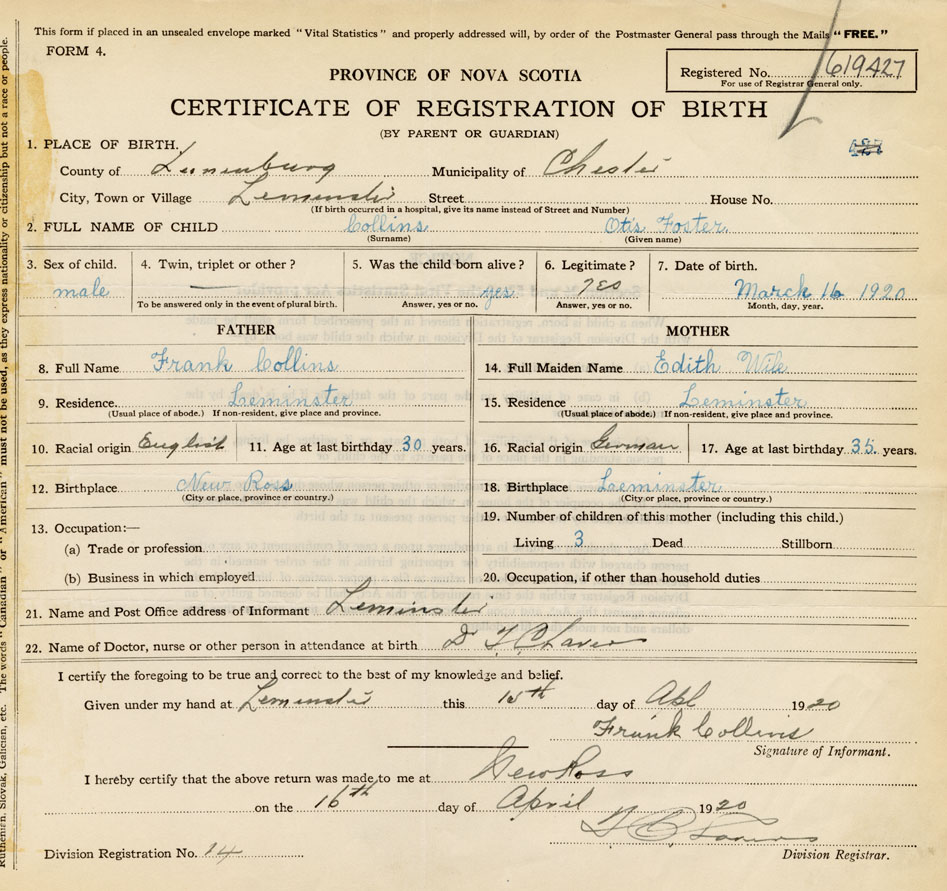 This form if placed in an unsealed envelope marked "Vital Statistics" and properly addressed will, by order of the Postmaster General pass through the Mails "FREE."
FORM 4.
Registered No. 619427
For use of Registrar General only.
PROVINCE OF NOVA SCOTIA
CERTIFICATE OF REGISTRATION OF BIRTH
(BY PARENT OR GUARDIAN)
1. PLACE OF BIRTH.
County of Lunenburg Municipality of Chester
City, Town or Village Leminster Street House No.
(If birth occurred in a hospital, give its name instead of Street and Number)
2. FULL NAME OF CHILD Collins Otis Foster
(Surname) (Given name)
3. Sex of child. 4. Twin, triplet or other? 5. Was the child born alive? 6. Legitimate? 7. Date of birth.
male — yes yes March 16 1920
To be answered only in the event of plural birth. Answer, yes or no. Answer, yes or no. Month, day, year.
FATHER
8. Full Name Frank Collins
9. Residence. Leminster
(Usual place of abode.) If non-resident, give place and province.
10. Racial origin English 11. Age at last birthday 30 years.
12. Birthplace New Ross
(City or place, province or country.)
13. Occupation:—
(a) Trade or profession
(b) Business in which employed
MOTHER
14. Full Maiden Name Edith Wile
15. Residence Leminster
(Usual place of abode.) If non-resident, give place and province.
16. Racial origin German 17. Age at last birthday 35 years.
18. Birthplace Leminster
(City or place, province or country.)
19. Number of children of this mother (including this child.)
Living 3 Dead Stillborn
20. Occupation, if other than household duties
21. Name and Post Office address of Informant Leminster
22. Name of Doctor, nurse or other person in attendance at birth
I certify the foregoing to be true and correct to the best of my knowledge and belief.
Given under my hand at Leminster this 15th day of Apl 1920
Frank Collins
Signature of Informant.
I hereby certify that the above return was made to me at New Ross
on the 16th day of April 1920
Division Registration No. 14 Division Registrar.
Ruthenian, Slovak, Galician, etc. The words "Canadian" or "American" must not be used, as they express nationality or citizenship but not a race or people.